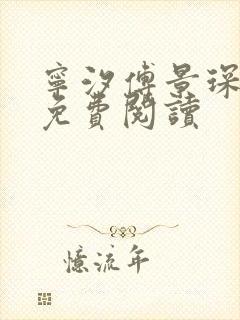 寧汐傅景琛
免費閱讀
憶流年